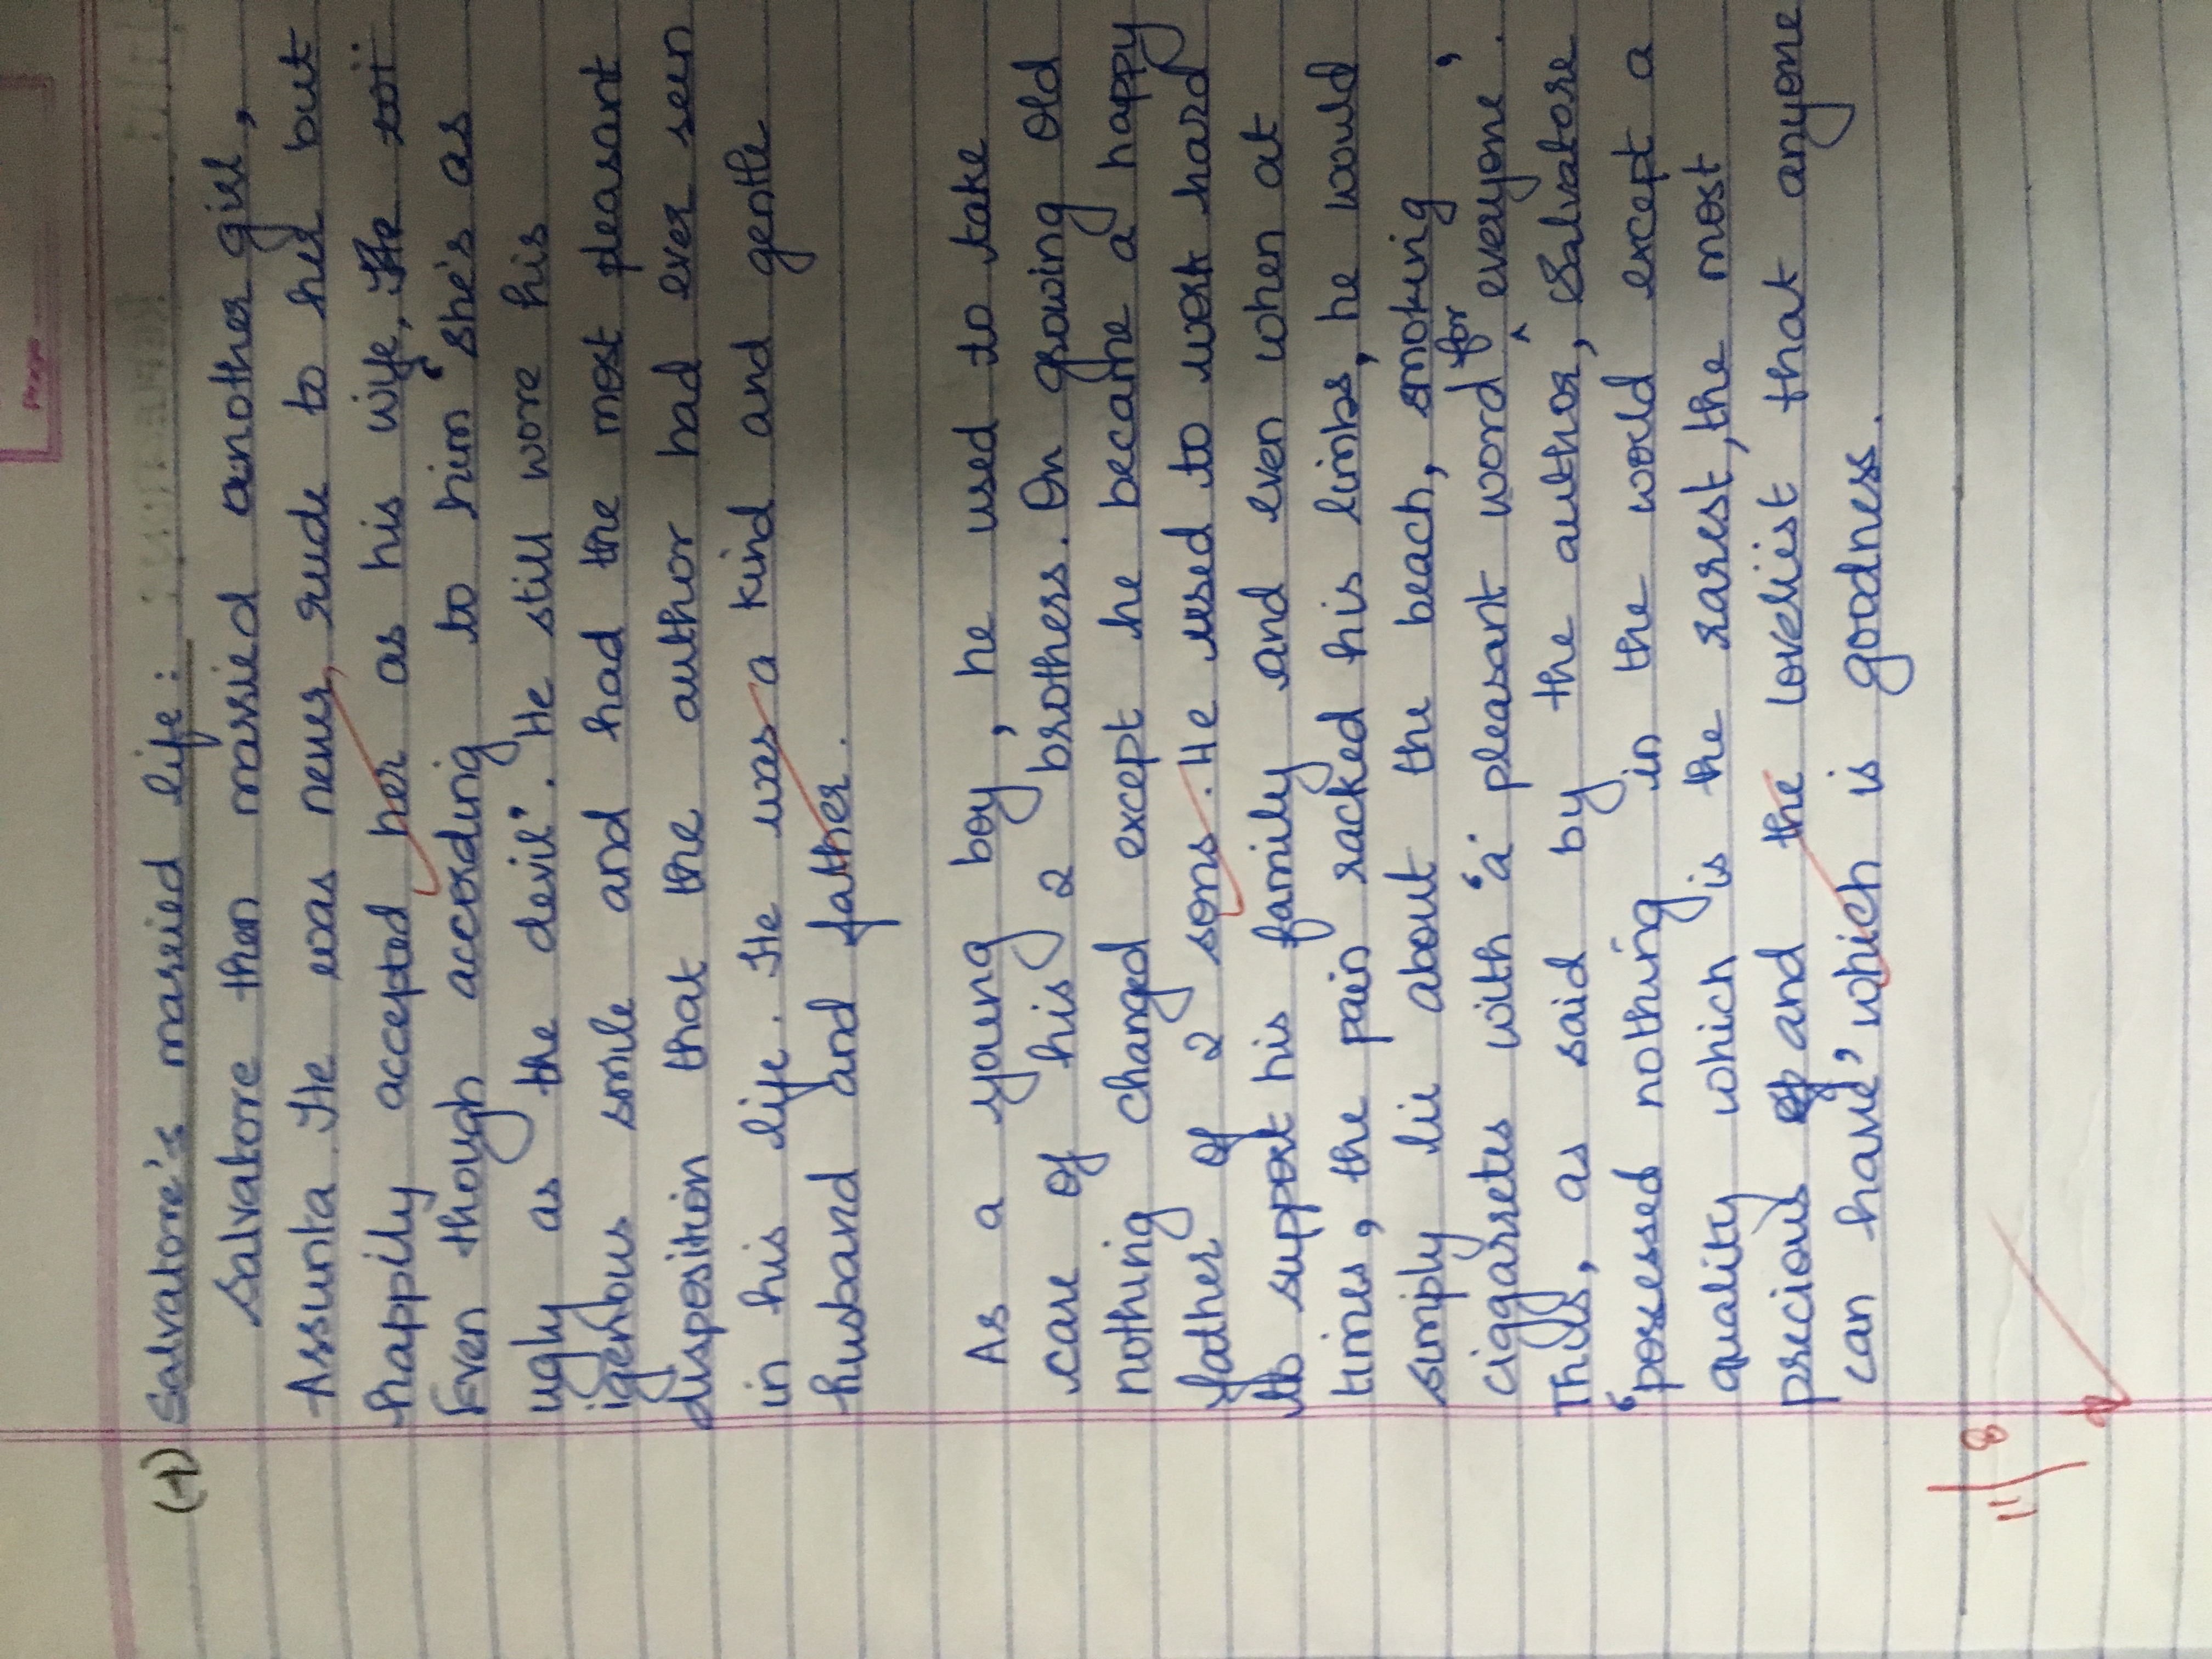 Page
(4) Salvatore's married life :
Salvatore then married another girl,
Assunta. He was never rude to her but
happily accepted her as his wife, He
Even though according to him 'she's as
ugly as the devil'. He still wore his
igenious smile and had the most pleasant
disposition that the author had ever seen
in his life. He was a kind and gentle
husband and father.
As a young boy, he used to take
care of his 2 brothers. On growing old
nothing changed except he became a happy
father of 2 sons. He used to work hard
to support his family and even when at
times, the pain racked his limbs, he would
simply lie about the beach, smoking
ciggarretes with 'a pleasant word for everyone'.
Thus, as said by the author, Salvatore
'possessed nothing in the world except a
quality which is the rarest, the most
precious and the loveliest that anyone
can have' which is goodness.
11/8